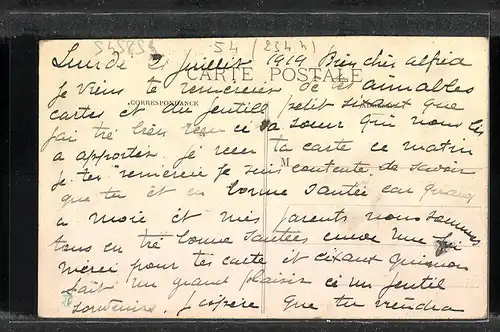 545854 54 (2344)
Lundi 21 juillet 1919 Bien cher alfred
CARTE POSTALE
je viens te remercier de tes aimables
CORRESPONDANCE
cartes et du jentille petit que
jai tré bien reçu ci ta soeur qui nous les
a apporter. je recu ta carte ce matin
M
je ten remercie je suis contente de savoir
que tu et en bonne santée car quand
a moie et mes parents nous sommes
tous en tré bonne santées encor une foi
merci pour tes carte et qui nous
fait un grand plaisir ci un jentil
souvenir. j'aispère que tu viendra